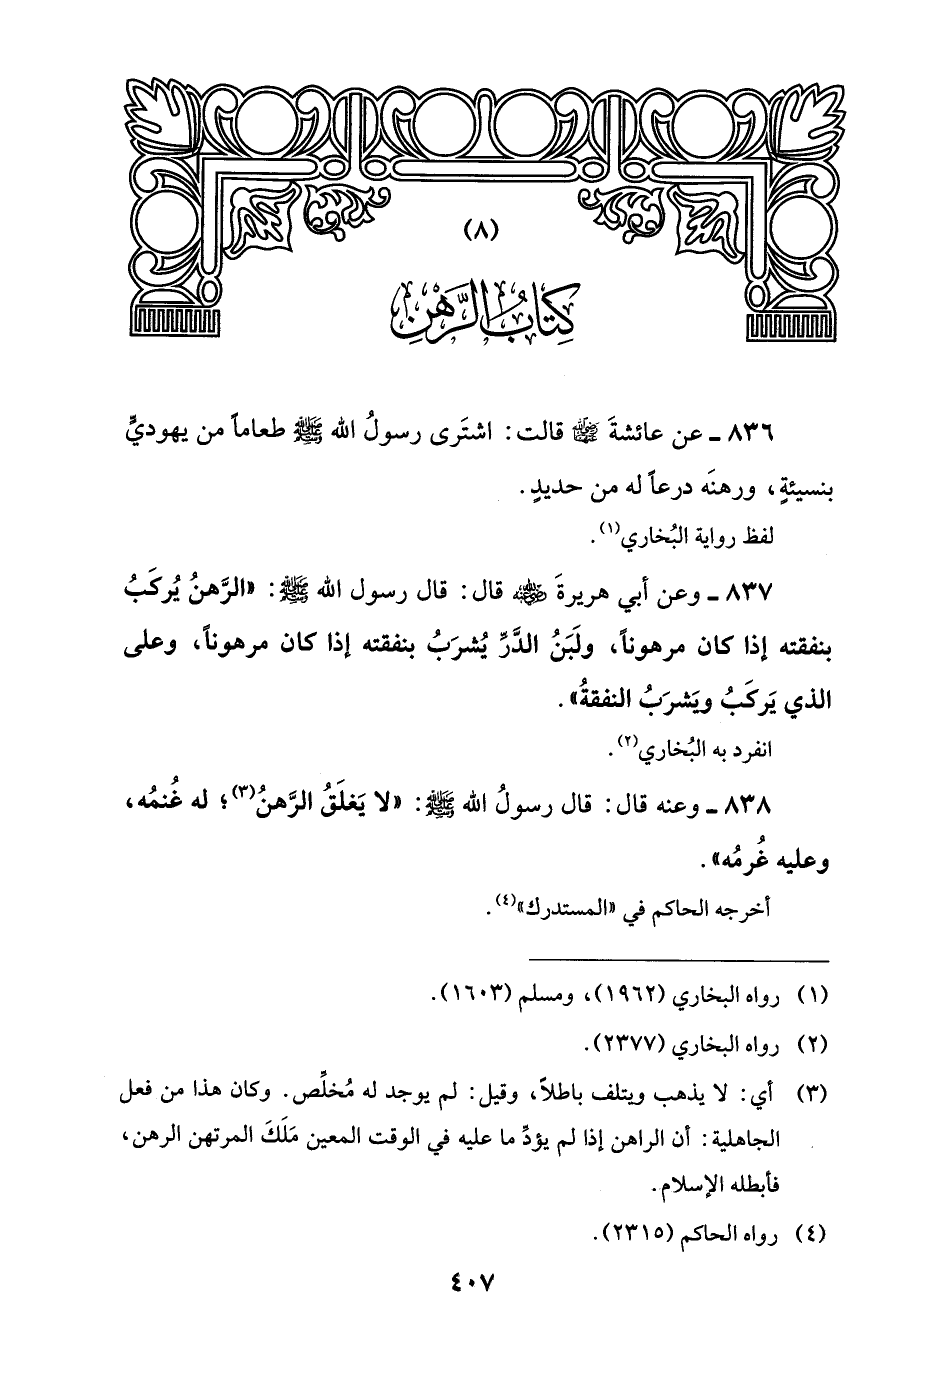 (٨)
كِتَابُ الرَّهْنِ
٨٣٦ ـ عن عائشةَ ﵂ قالت: اشتَرى رسولُ الله ﷺ طعاماً من يهوديٍّ
بنسيئةٍ، ورهنَه درعاً له من حديدٍ.
لفظ رواية البُخاري(١).
٨٣٧ ـ وعن أبي هريرةَ ﵁ قال: قال رسول الله ﷺ: «الرَّهنُ يُركَبُ
بنفقته إذا كان مرهوناً، ولَبَنُ الدَّرِّ يُشرَبُ بنفقته إذا كان مرهوناً، وعلى
الذي يَركَبُ ويَشرَبُ النفقةُ».
انفرد به البُخاري(٢).
٨٣٨ ـ وعنه قال: قال رسولُ الله ﷺ: «لا يَغلَقُ الرَّهنُ(٣)؛ له غُنمُه،
وعليه غُرمُه».
أخرجه الحاكم في «المستدرك»(٤).
(١) رواه البخاري (١٩٦٢)، ومسلم (١٦٠٣).
(٢) رواه البخاري (٢٣٧٧).
(٣) أي: لا يذهب ويتلف باطلاً، وقيل: لم يوجد له مُخلِّص. وكان هذا من فعل
الجاهلية: أن الراهن إذا لم يؤدِّ ما عليه في الوقت المعين مَلَكَ المرتهن الرهن،
فأبطله الإسلام.
(٤) رواه الحاكم (٢٣١٥).
٤٠٧